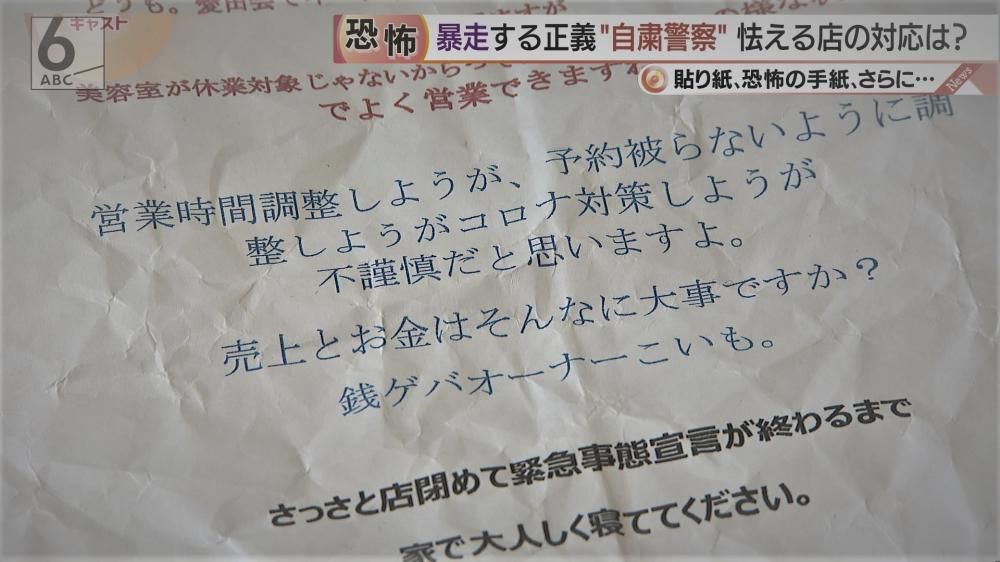 キャスト
6
ABC
恐怖 暴走する正義"自粛警察" 怯える店の対応は?
貼り紙、恐怖の手紙、さらに…
News
美容室が休業対象じゃないからっ
でよく営業できます
営業時間調整しようが、予約被らないように調
整しようがコロナ対策しようが
不謹慎だと思いますよ。
売上とお金はそんなに大事ですか?
銭ゲバオーナーこいも。
さっさと店閉めて緊急事態宣言が終わるまで
家で大人しく寝ててください。